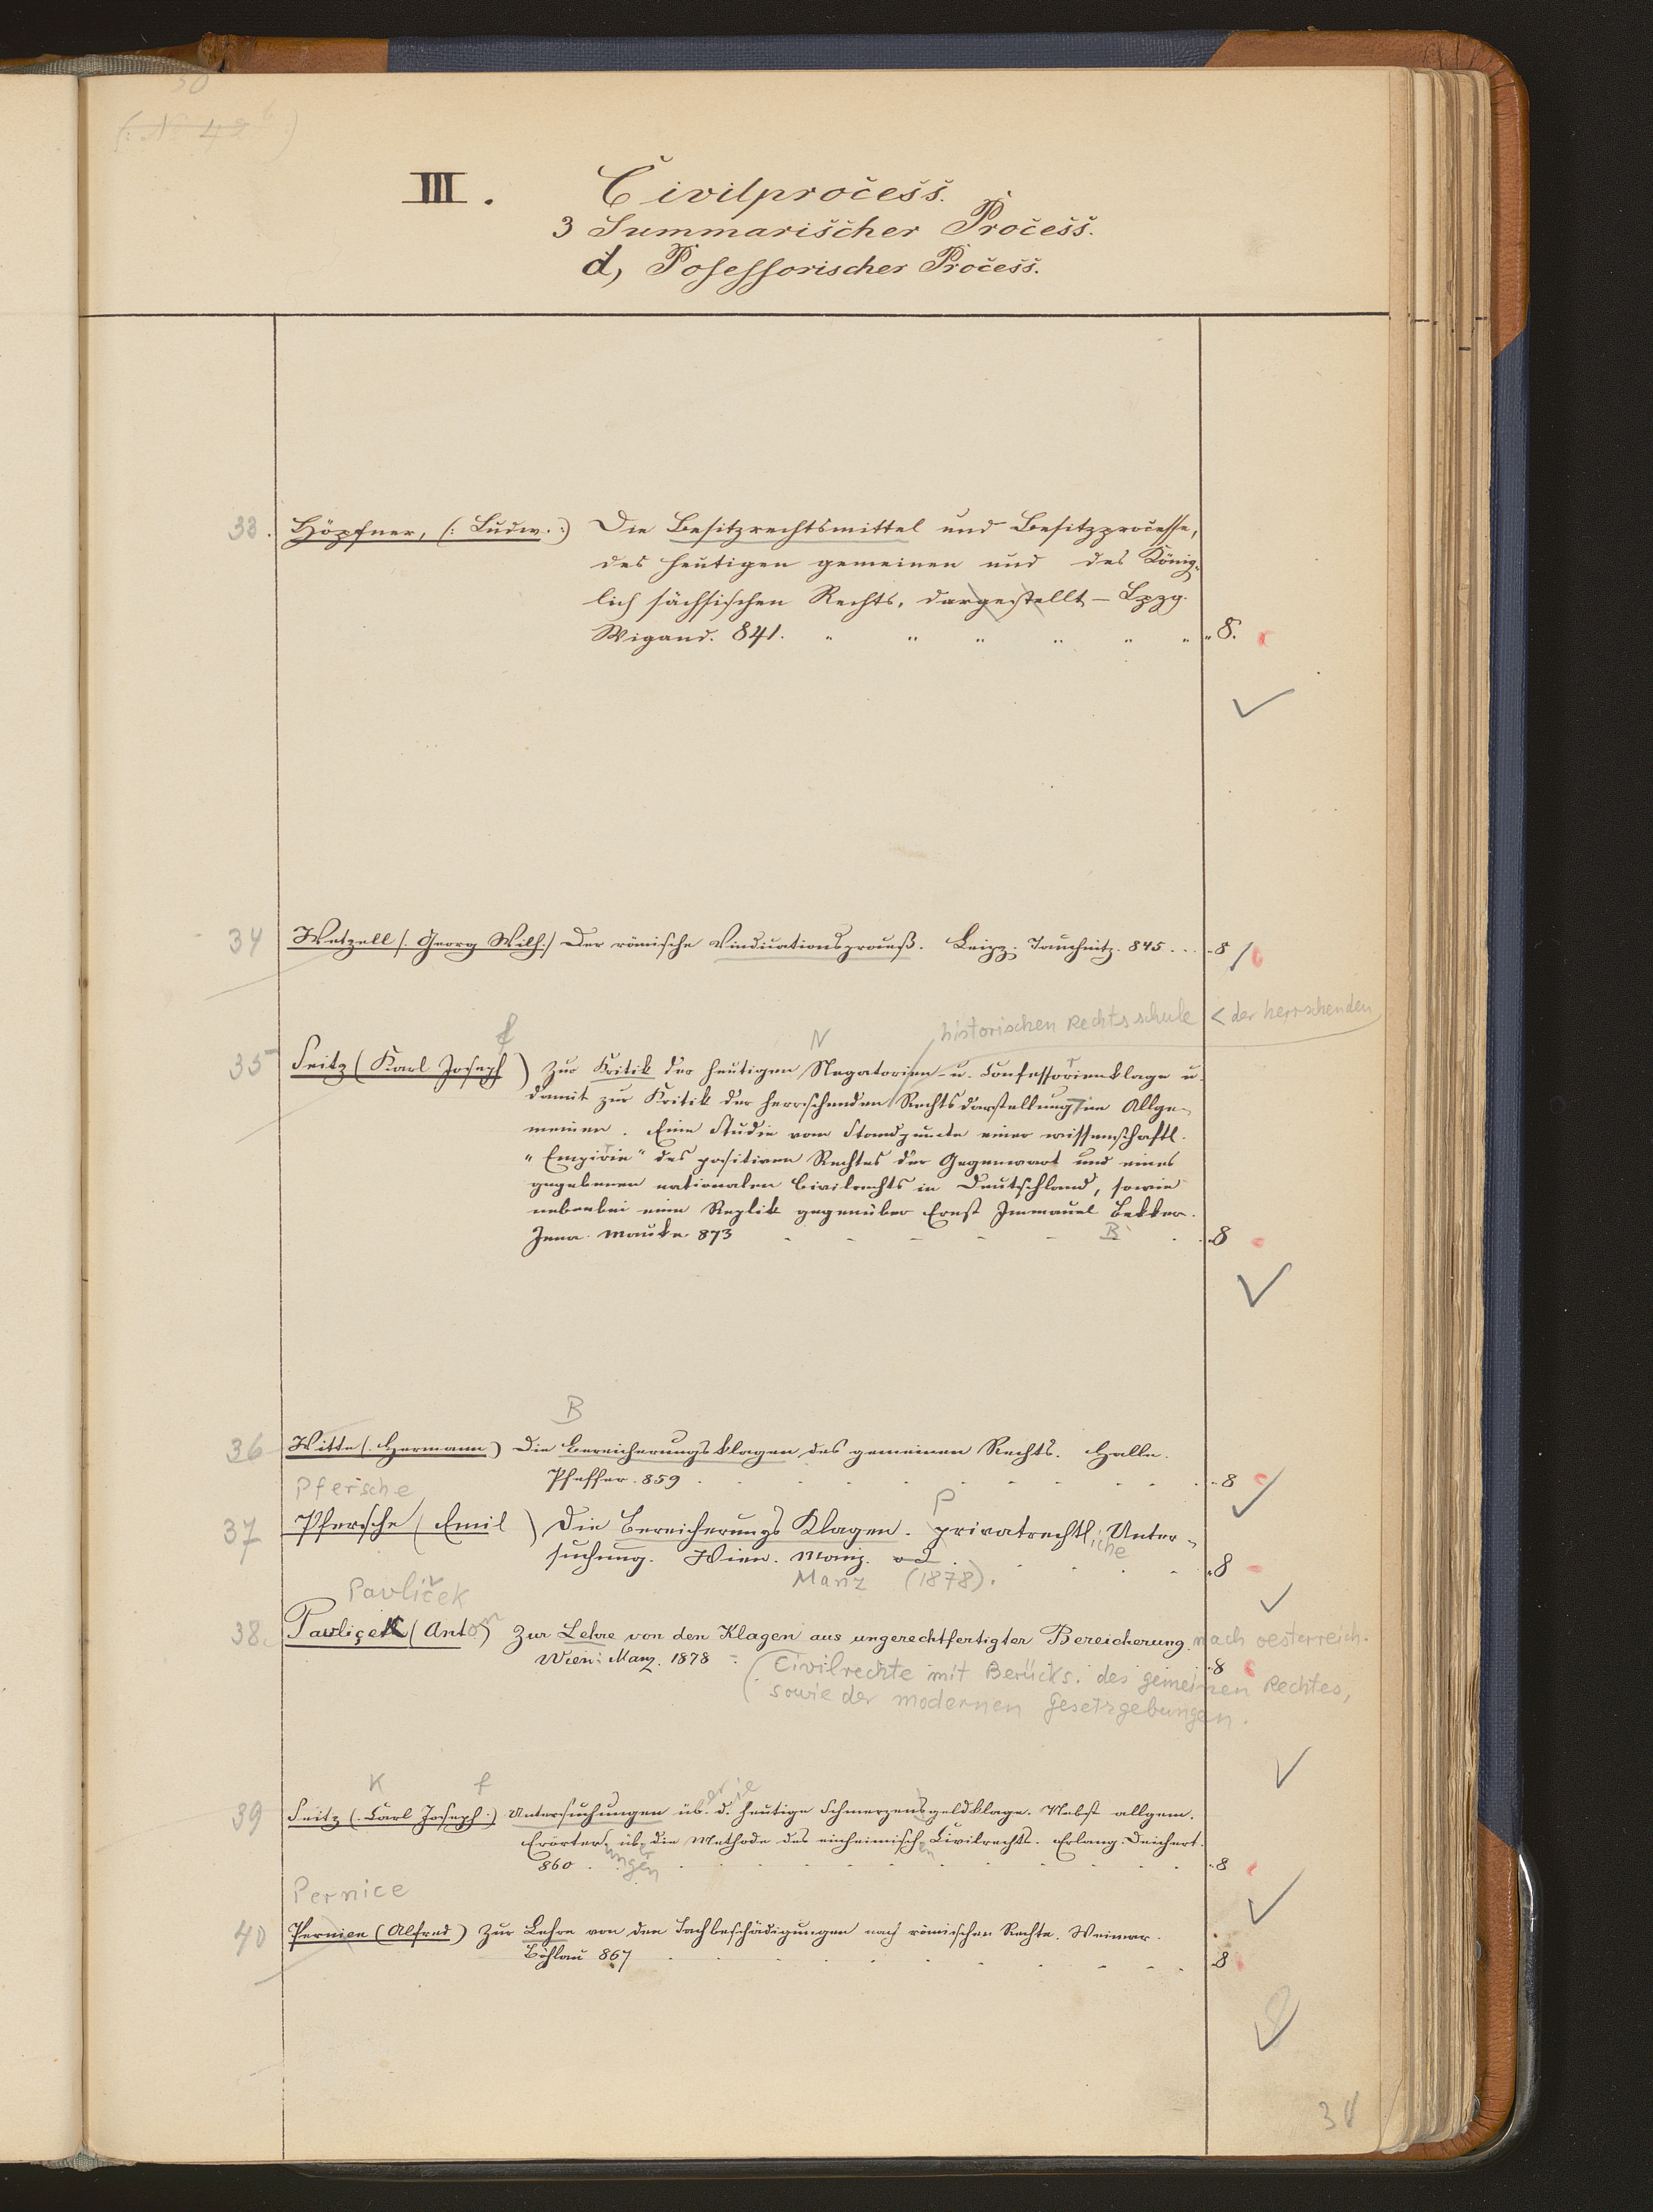 30
(: № 42 b :)
III. Civilprocess.
3 Summarischer Process.
d, Posessorischer Process.
33. Höpfner, (: Ludw. :) Die Besitzrechtsmittel und Besitzprocesse,
des heutigen gemeinen und des König-
lich sächsischen Rechts, dargestellt – Lpzg.
Wigand. 841. " " " " " " " 8.
34 Wetzell (: Georg Wilh:) Der römische Vindicationsproceß. Leipz. Tauchnitz. 845 . . . 8
historischen Rechtsschule < der herrschenden
f N r
35 Seitz (Karl Joseph) Zur Kritik der heutigen Negatorien- u. Confessorienklage u.
damit zur Kritik der herrschenden Rechtsdarstellung im Allge-
meinen. Eine Studie vom Standpuncte einer wissenschaftl.
"Empirie" des positiven Rechtes der Gegenwart und eines
gegebenen nationalen Civilrechts in Deutschland, sowie
nebenbei eine Replik gegenüber Ernst Immanuel Bekker.
Jena. Mauke 873 - - - - - B . . 8
B
36 Witte (. Hermann) Die Bereicherungsklagen des gemeinen Rechts. Halle.
Pfeffer. 859 . . . . . . . . 8
Pfersche
P
37 Pfersche (Emil) Die Bereicherungs Klagen. privatrechtliche Unter-
suchung. Wien. Manz. o J . . . . . 8
Manz (1878).
Pavlíček
38. Pavliçek (Anton) Zur Lehre von den Klagen aus ungerechtfertigter Bereicherung nach oesterreich.
Wien: Manz. 1878 - . 8
(Civilrechte mit Berücks. des gemeinen Rechtes,
sowie der modernen Gesetzgebungen.
K f er ie
39 Seitz (. Carl Joseph :) Untersuchungen üb. d. heutige Schmerzensgeldklage. Nebst allgem.
Erörter. üb. die Methode des einheimisch. Civilrechts. Erlang. Deichert.
ungen er en
860 . . . . . . . . . 8
Pernice
40 Pernien (Alfred) Zur Lehre von den Sachbeschädigungen nach römischen Rechte. Weimar.
Böhlau 867 . . . . . . . . 8